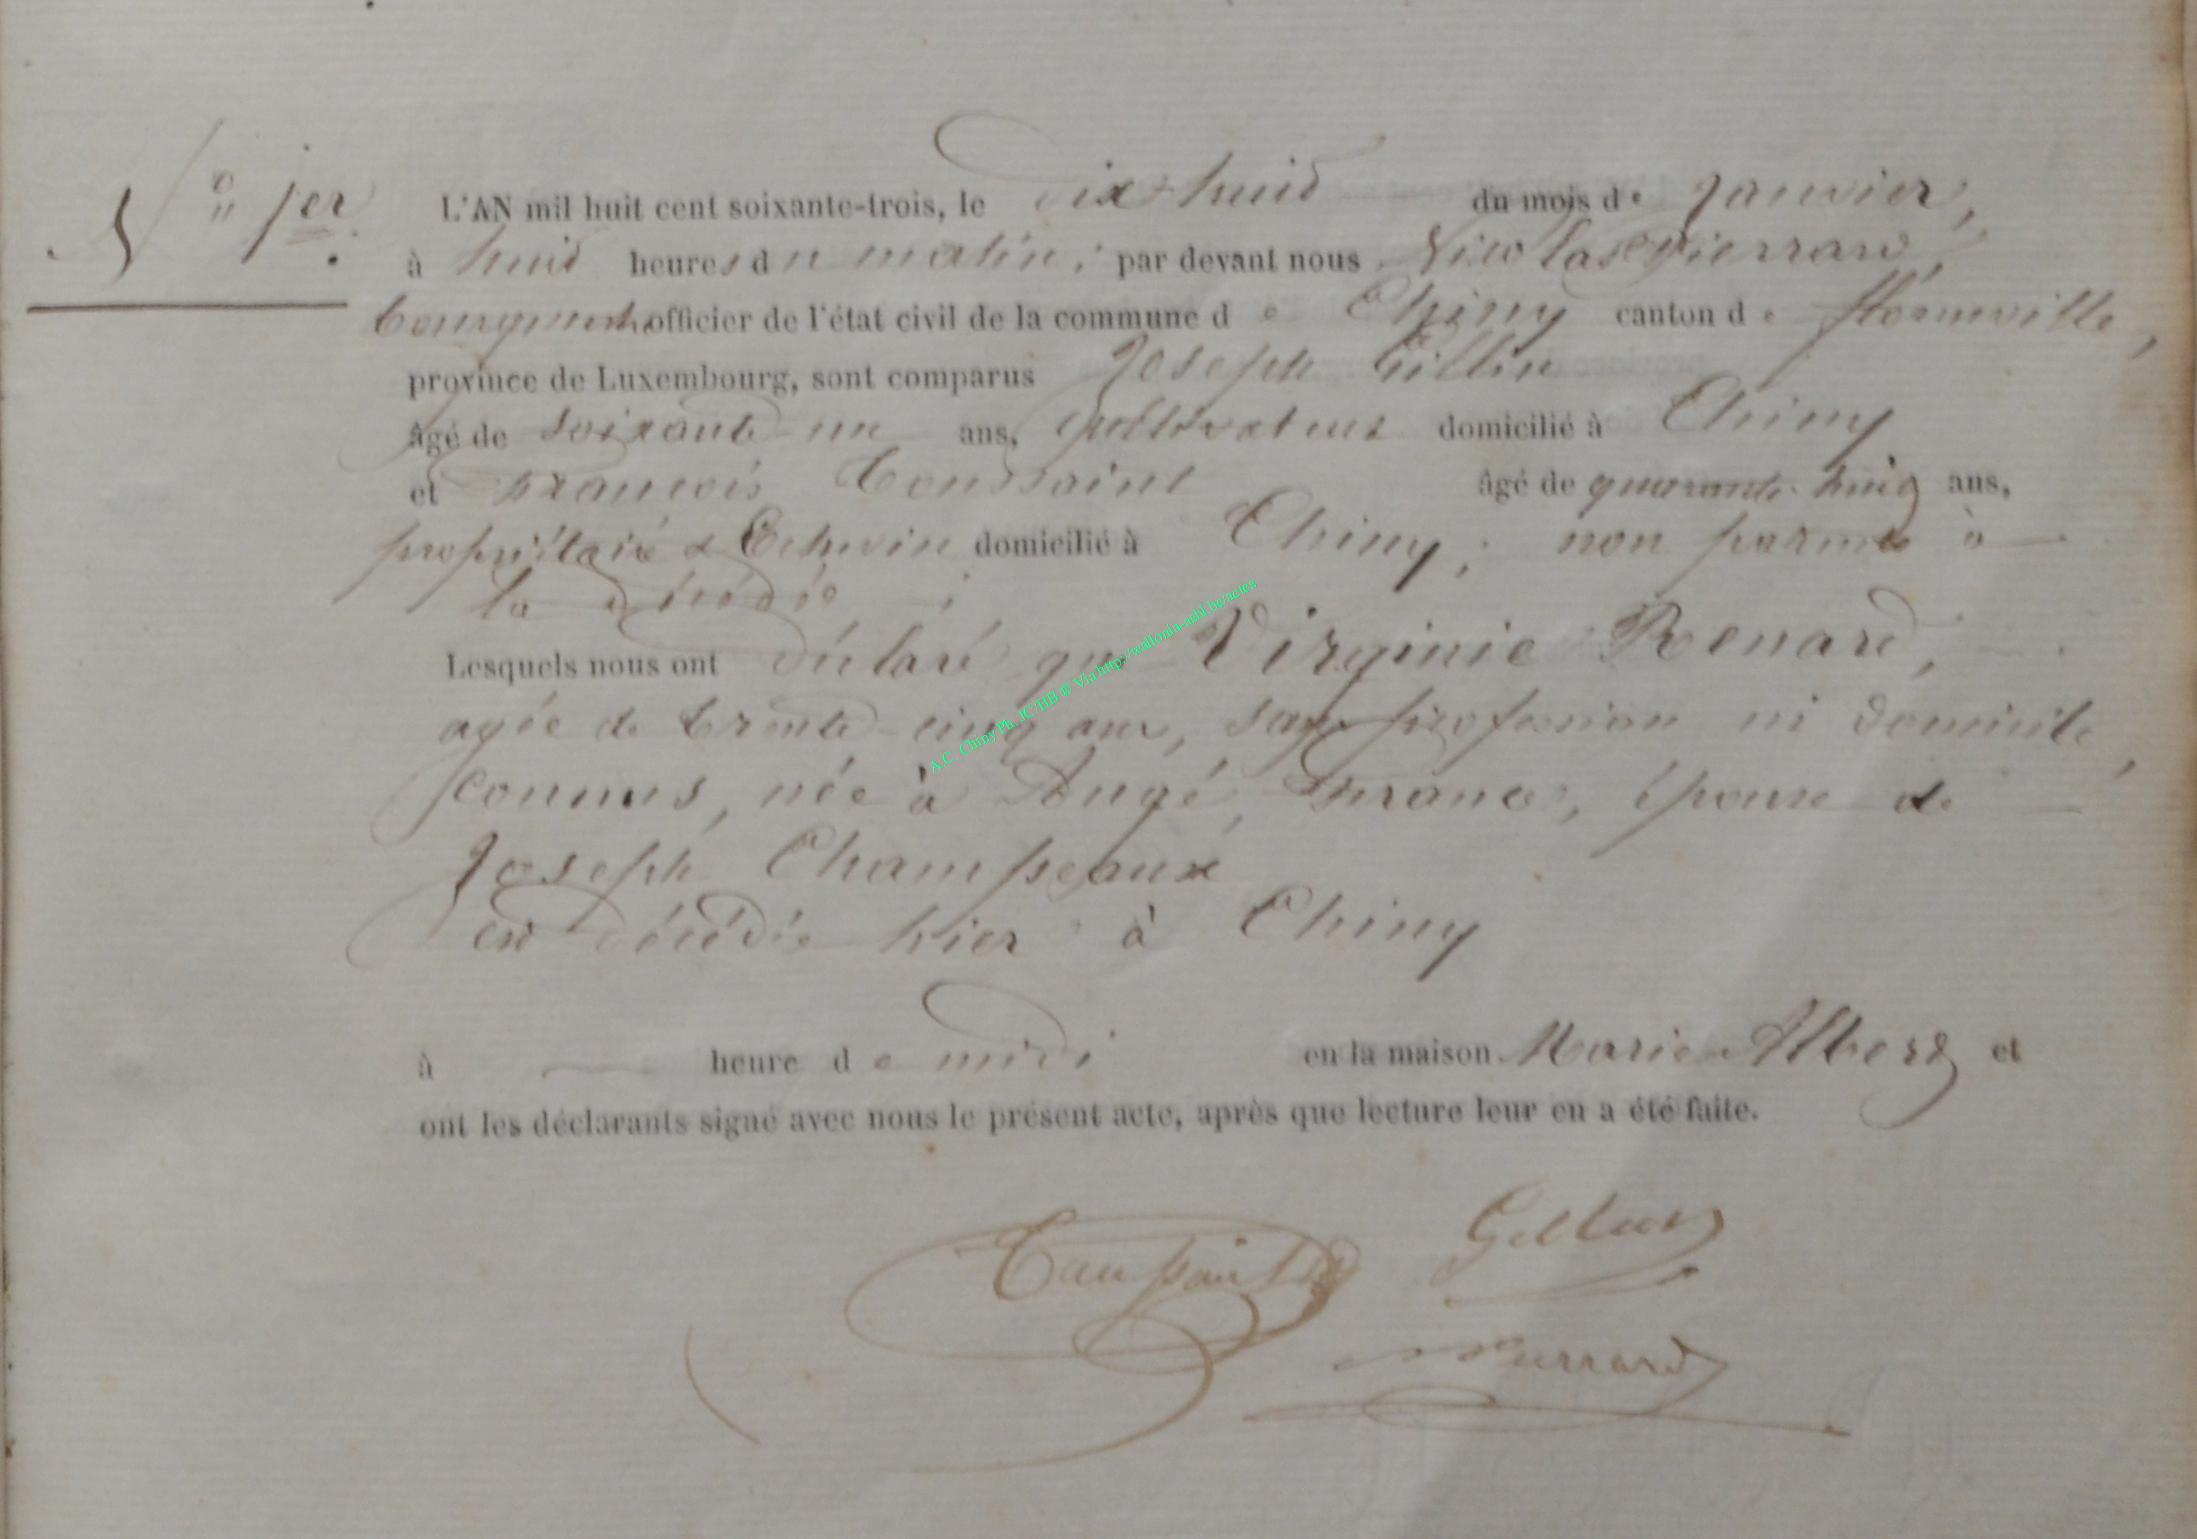 N° 1er.
L'AN mil huit cent soixante-trois, le dix-huit du mois de Janvier,
à huit heures du matin, par devant nous Nicolas Pierrard,
bourgmestre officier de l'état civil de la commune de Chiny canton de Florenville,
province de Luxembourg, sont comparus Joseph Gillin
âgé de soixante-un ans, cultivateur domicilié à Chiny
et François Toussaint âgé de quarante-huit ans,
propriétaire & Echevin domicilié à Chiny, non parents à
la décédée;
Lesquels nous ont déclaré que Virginie Renard,
agée de trente-cinq ans, sans profession ni domicile
connus, née à Augé, France, épouse de
Joseph Champeaux
est décédée hier à Chiny
à — heure de midi en la maison Marie Albert et
ont les déclarants signé avec nous le présent acte, après que lecture leur en a été faite.
Toussaint
Pierrard
A.C. Chiny Ph. JC/HB © Via http://wallonia-asbl.be/actes